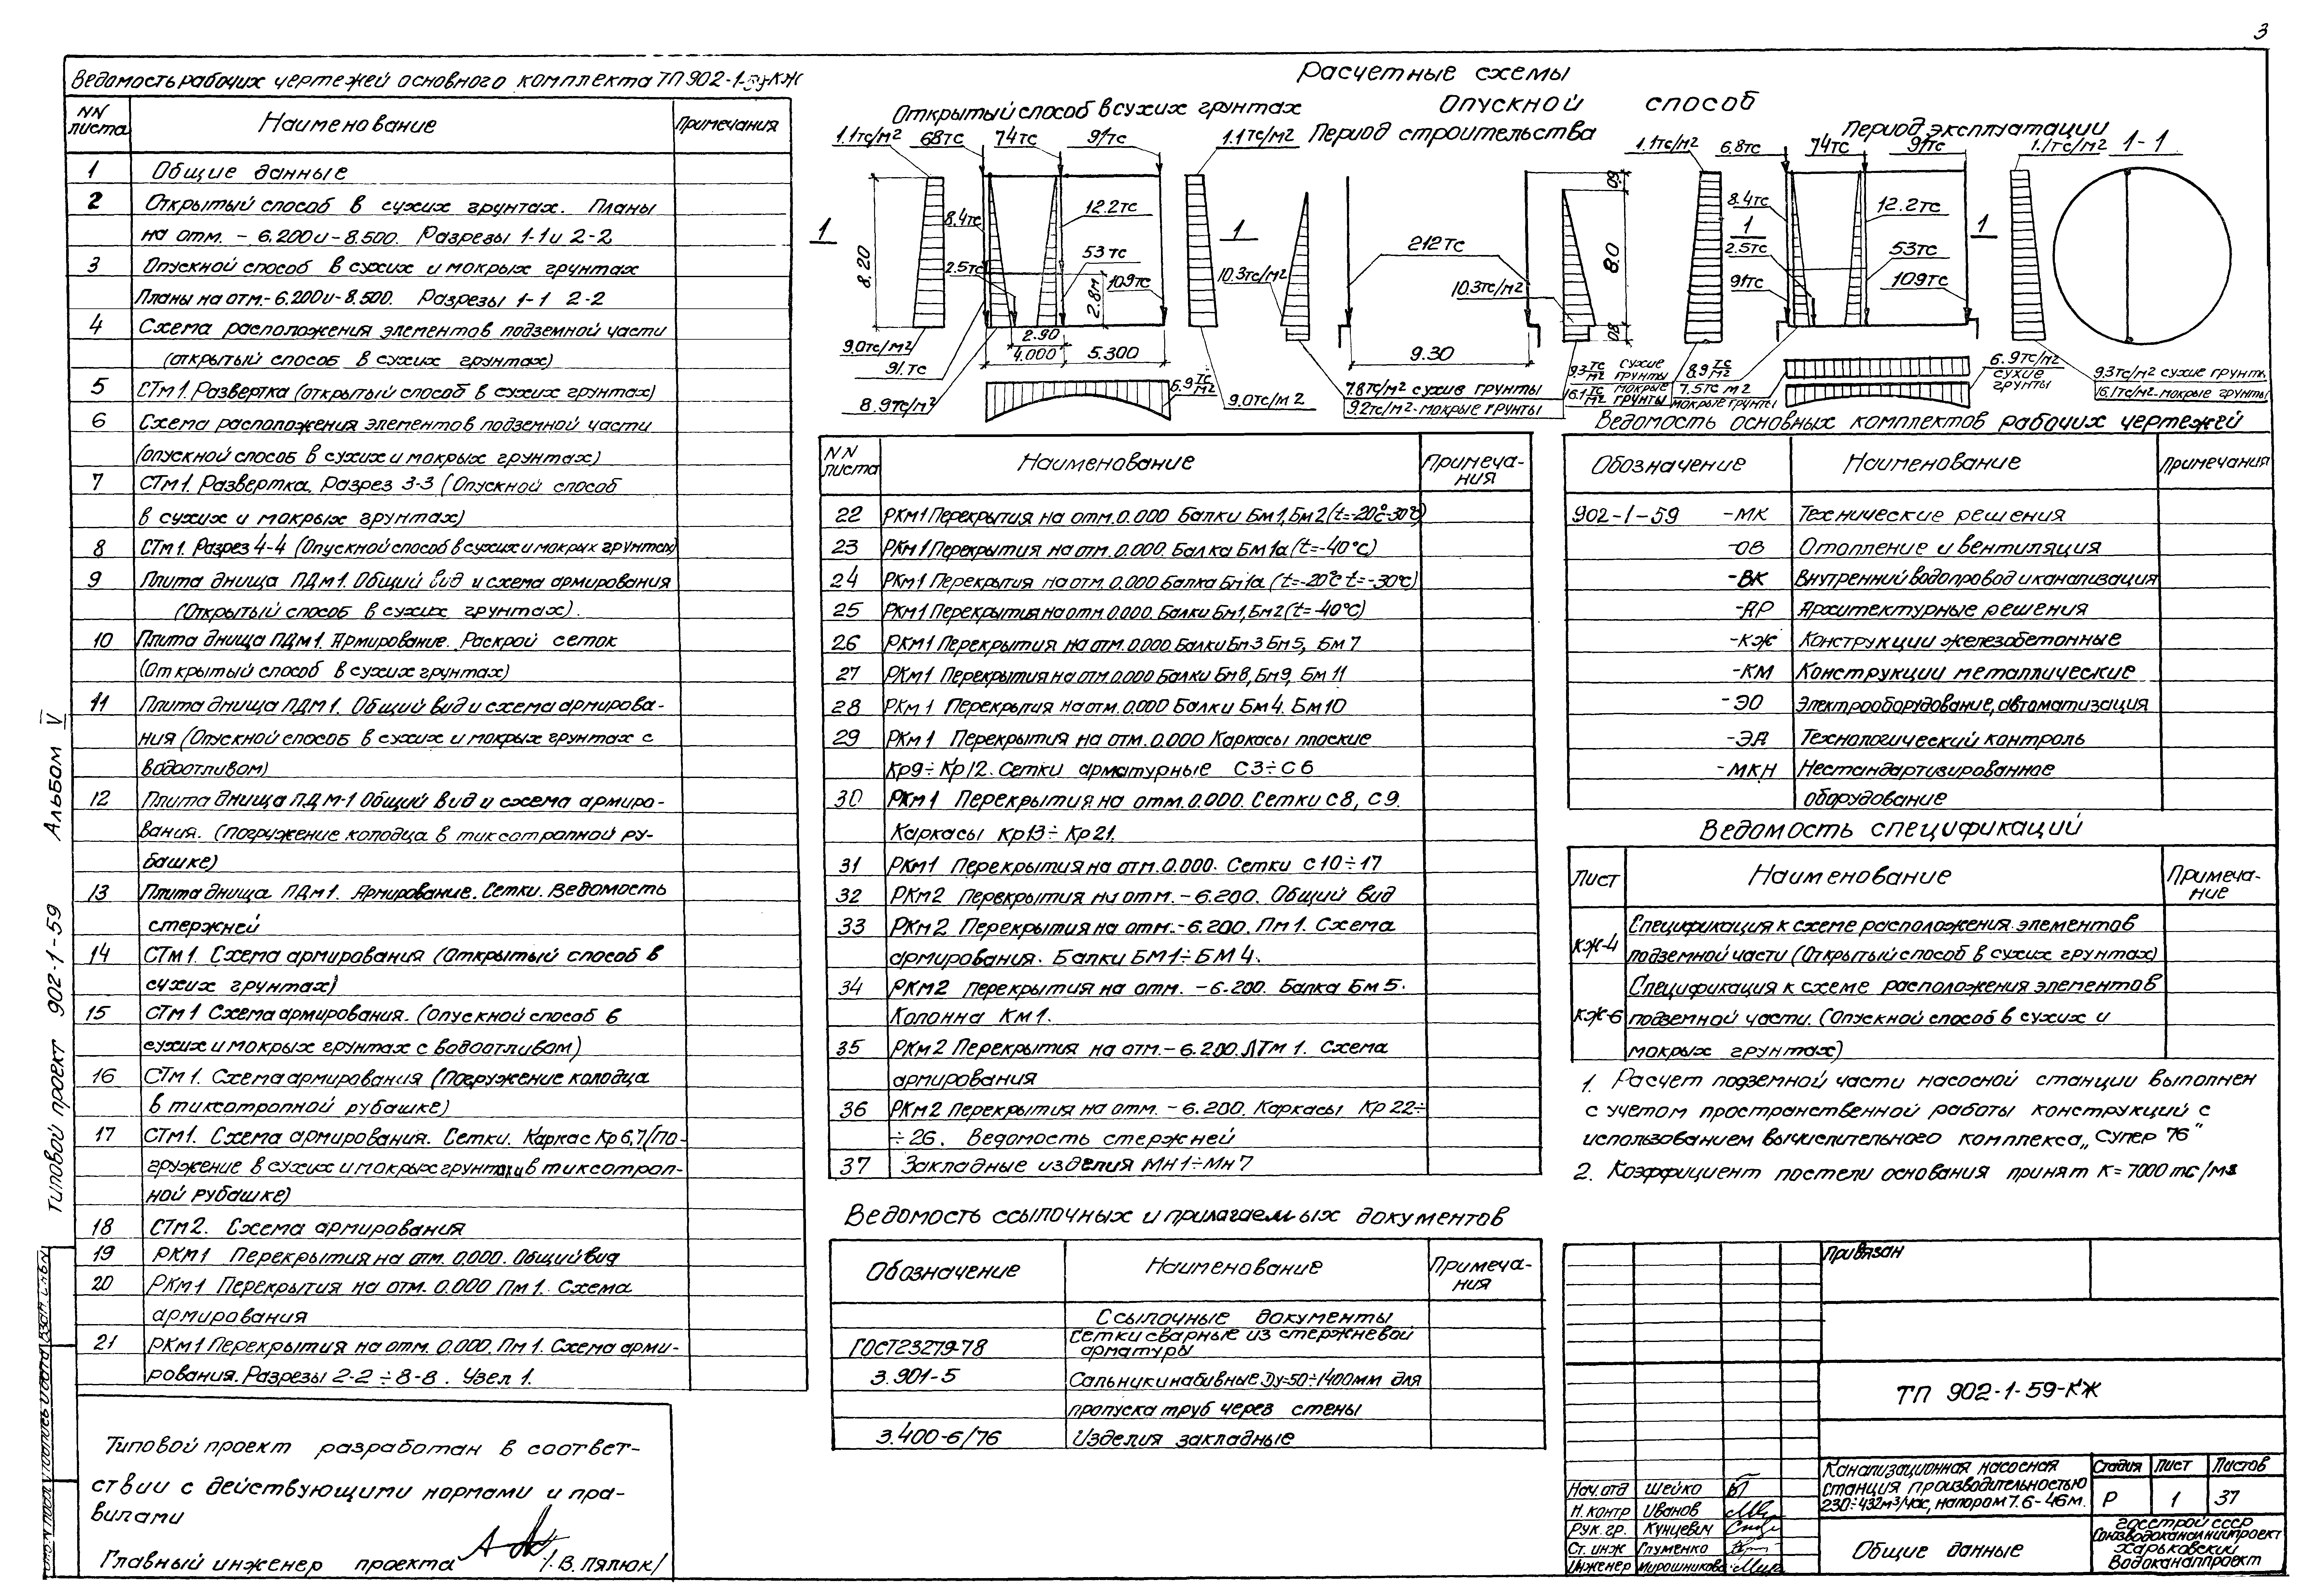 3
Ведомость рабочих чертежей основного комплекта ТП 902-1-59-КЖ
NN листа Наименование Примечания
1 Общие данные
2 Открытый способ в сухих грунтах. Планы
на отм. -6.200 и -8.500. Разрезы 1-1 и 2-2
3 Опускной способ в сухих и мокрых грунтах
Планы на отм.-6.200 и-8.500. Разрезы 1-1 2-2
4 Схема расположения элементов подземной части
(открытый способ в сухих грунтах)
5 СТм1. Развертка (открытый способ в сухих грунтах)
6 Схема расположения элементов подземной части
(опускной способ в сухих и мокрых грунтах)
7 СТм1. Развертка. Разрез 3-3 (Опускной способ
в сухих и мокрых грунтах)
8 СТм1. Разрез 4-4 (Опускной способ в сухих и мокрых грунтах)
9 Плита днища ПДм1. Общий вид и схема армирования
(Открытый способ в сухих грунтах).
10 Плита днища ПДм1. Армирование. Раскрой сеток
(Открытый способ в сухих грунтах)
11 Плита днища ПДм1. Общий вид и схема армирова-
ния (Опускной способ в сухих и мокрых грунтах с
водоотливом)
12 Плита днища ПДм-1 Общий вид и схема армиро-
вания. (погружение колодца в тиксотропной ру-
башке)
13 Плита днища ПДм1. Армирование. Сетки. Ведомость
стержней
14 СТм1. Схема армирования (Открытый способ в
сухих грунтах)
15 СТм1 Схема армирования. (опускной способ в
сухих и мокрых грунтах с водоотливом)
16 СТм1. Схема армирования (Погружение колодца
в тиксотропной рубашке)
17 СТм1. Схема армирования. Сетки. Каркас Кр6,7 (По-
гружение в сухих и мокрых грунтах и в тиксотроп-
ной рубашке)
18 СТм2. Схема армирования
19 РКм1 Перекрытия на отм. 0.000. Общий вид
20 РКм1 Перекрытия на отм. 0.000 Пм1. Схема
армирования
21 РКм1 Перекрытия на отм. 0.000. Пм1. Схема арми-
рования. Разрезы 2-2÷8-8. Узел 1.
Типовой проект разработан в соответ-
ствии с действующими нормами и пра-
вилами
Главный инженер проекта /В. Пялюк/
Типовой проект 902-1-59 Альбом V
Расчетные схемы
Открытый способ в сухих грунтах
Опускной способ
Период строительства
Период эксплуатации
1.1тс/м2 68тс 74тс 91тс 1.1тс/м2
1.1тс/м2 6.8тс 74тс 91тс 1.1тс/м2 1-1
8.4тс 12.2тс 8.4тс 12.2тс
1 1 1 1
8.20 2.5тс 53тс 2.8м 109тс 10.3тс/м2 212тс 10.3тс/м2 8.0 2.5тс 53тс 91тс 109тс
9.0тс/м2 2.90 4.000 5.300 9.30
91.тс 8.9тс/м2 6.9 тс/м2 9.0тс/м2
7.8тс/м2 сухие грунты
9.2тс/м2-мокрые грунты
9.3 тс/м2 сухие грунты
16.1 тс/м2 мокрые грунты
8.9 тс/м2
7.5тс м2
мокрые грунты
6.9тс/м2
сухие
грунты
9.3тс/м2 сухие грунты
16.1тс/м2-мокрые грунты
NN листа Наименование Примечания
22 РКм1 Перекрытия на отм.0.000 Балки Бм1,Бм2 (t=-20°с-30°с)
23 РКм1 Перекрытия на отм.0.000. Балка Бм1а (t=-40°с)
24 РКм1 Перекрытия на отм.0.000 Балка Бм1а (t=-20°с t=-30°с)
25 РКм1 Перекрытия на отм.0.000. Балки Бм1,Бм2 (t=-40°с)
26 РКм1 Перекрытия на отм.0.000 Балки Бм3 Бм5, Бм7
27 РКм1 Перекрытия на отм.0.000 Балки Бм8, Бм9, Бм11
28 РКм1 Перекрытия на отм.0.000 Балки Бм4. Бм10
29 РКм1 Перекрытия на отм.0.000 Каркасы плоские
Кр9÷Кр12. Сетки арматурные С3÷С6
30 РКм1 Перекрытия на отм.0.000. Сетки С8, С9.
Каркасы Кр13÷Кр21.
31 РКм1 Перекрытия на отм.0.000. Сетки С10÷17
32 РКм2 Перекрытия на отм. -6.200. Общий вид
33 РКм2 Перекрытия на отм.-6.200. Пм1. Схема
армирования. Балки БМ1÷БМ4.
34 РКм2 Перекрытия на отм. -6.200. Балка Бм5.
Колонна Км1.
35 РКм2 Перекрытия на отм.-6.200. ЛТм1. Схема
армирования
36 РКм2 Перекрытия на отм. -6.200. Каркасы Кр22÷
÷26. Ведомость стержней
37 Закладные изделия Мн1÷Мн7
Ведомость ссылочных и прилагаемых документов
Обозначение Наименование Примечания
Ссылочные документы
ГОСТ23279-78 Сетки сварные из стержневой
арматуры
3.901-5 Сальники набивные Ду=50÷1400мм для
пропуска труб через стены
3.400-6/76 Изделия закладные
Ведомость основных комплектов рабочих чертежей
Обозначение Наименование Примечания
902-1-59 -МК Технические решения
-ОВ Отопление и вентиляция
-ВК Внутренний водопровод и канализация
-АР Архитектурные решения
-КЖ Конструкции железобетонные
-КМ Конструкции металлические
-ЭО Электрооборудование, автоматизация
-ЭА Технологический контроль
-МКН Нестандартизированное
оборудование
Ведомость спецификаций
Лист Наименование Примечание
КЖ-4 Спецификация к схеме расположения элементов
подземной части (Открытый способ в сухих грунтах)
КЖ-6 Спецификация к схеме расположения элементов
подземной части. (Опускной способ в сухих и
мокрых грунтах)
1. Расчет подземной части насосной станции выполнен
с учетом пространственной работы конструкций с
использованием вычислительного комплекса „Супер 76"
2. Коэффициент постели основания принят К=7000 тс/м3
Привязан
ТП 902-1-59-КЖ
Канализационная насосная
станция производительностью
230÷432м3/час, напором 7.6-46м.
Стадия Лист Листов
Р 1 37
Общие данные
Госстрой СССР
Союзводоканалниипроект
Харьковский
Водоканалпроект
Нач.отд Шейко
Н.контр Иванов
Рук.гр. Кунцевич
Ст. инж Глуменко
Инженер Мирошникова